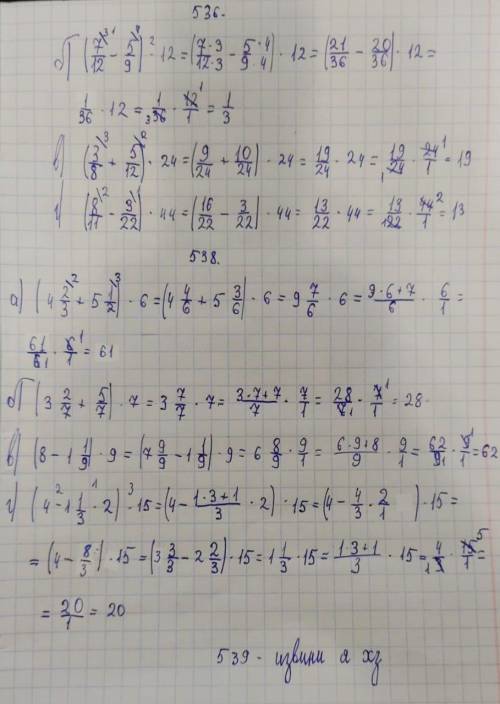 536.
б) (7/12 \3 - 5/9 \4)² · 12 = (7·3/12·3 - 5·4/9·4) · 12 = (21/36 - 20/36) · 12 =
1/36 · 12 = 1/36 3 · 12/1 1 = 1/3
в) (3/8 \3 + 5/12 \2) · 24 = (9/24 + 10/24) · 24 = 19/24 · 24 = 19/24 1 · 24/1 1 = 19
г) (8/11 \2 - 3/22 \1) · 44 = (16/22 - 3/22) · 44 = 13/22 · 44 = 13/22 1 · 44/1 2 = 13
538.
а) (4 2/3 \2 + 5 1/2 \3) · 6 = (4 4/6 + 5 3/6) · 6 = 9 7/6 · 6 = 9·6+7/6 · 6/1 =
61/6 1 · 6/1 1 = 61
б) (3 2/7 + 5/7) · 7 = 3 7/7 · 7 = 3·7+7/7 · 7/1 = 28/7 1 · 7/1 1 = 28
в) (8 - 1 1/9) · 9 = (7 9/9 - 1 1/9) · 9 = 6 8/9 · 9/1 = 6·9+8/9 · 9/1 = 62/9 1 · 9/1 1 = 62
г) (4 -² 1 1/3 ·¹ 2) ·³ 15 = (4 - 1·3+1/3 · 2) · 15 = (4 - 4/3 · 2/1) · 15 =
= (4 - 8/3) · 15 = (3 3/3 - 2 2/3) · 15 = 1 1/3 · 15 = 1·3+1/3 · 15 = 4/3 1 · 15/1 5 =
= 20/1 = 20
539 - извини я хз